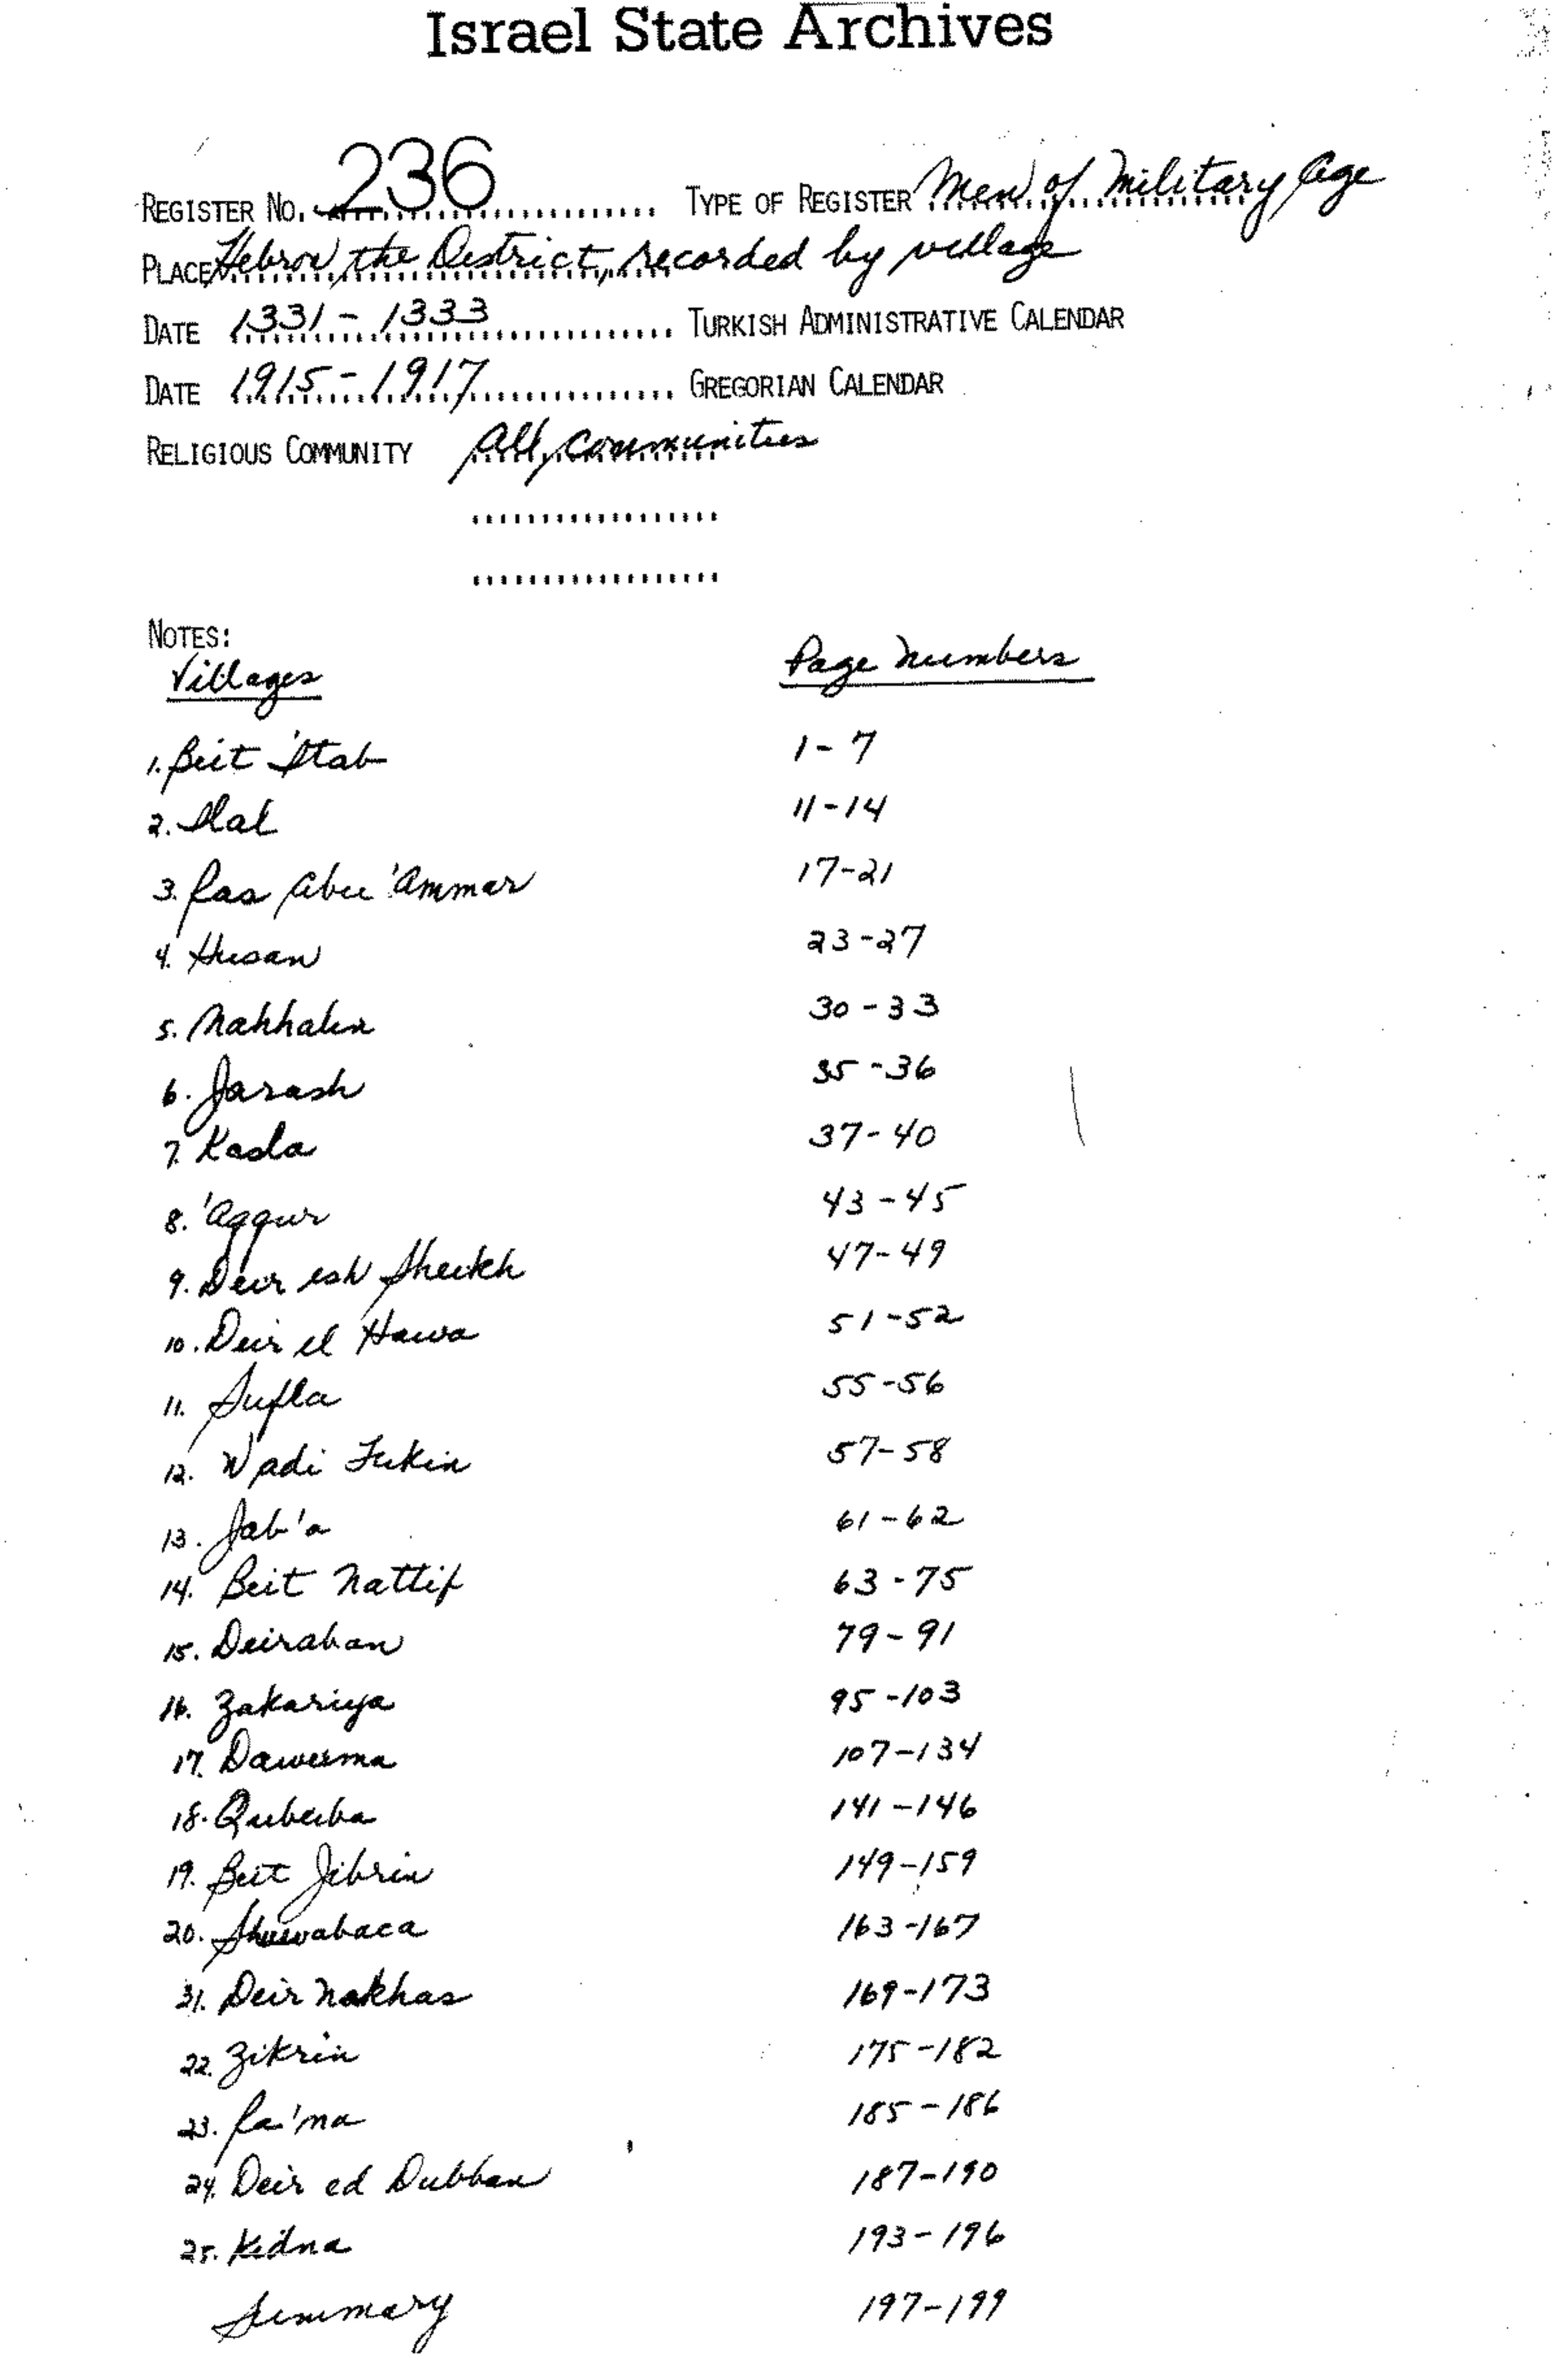 Israel State Archives
REGISTER NO. 236 TYPE OF REGISTER Men of Military Age
PLACE Hebron, the District, recorded by village
DATE 1331 - 1333 TURKISH ADMINISTRATIVE CALENDAR
DATE 1915 - 1917 GREGORIAN CALENDAR
RELIGIOUS COMMUNITY All communities
NOTES:
Villages Page Numbers
1. Beit 'Itab 1 - 7
2. Illal 11 - 14
3. Ras Abu 'Ammar 17 - 21
4. Husan 23 - 27
5. Nahhalin 30 - 33
6. Jarash 35 - 36
7. Kasla 37 - 40
8. 'Aggur 43 - 45
9. Deir esh Sheikh 47 - 49
10. Deir el Hawa 51 - 52
11. Sufla 55 - 56
12. Wadi Fukin 57 - 58
13. Jab'a 61 - 62
14. Beit Nattif 63 - 75
15. Deiraban 79 - 91
16. Zakariya 95 - 103
17. Daweima 107 - 134
18. Qubeiba 141 - 146
19. Beit Jibrin 149 - 159
20. 163 - 167
31. Deir Nakhas 169 - 173
22. Zikrin 175 - 182
23. Ra'na 185 - 186
24. Deir ed Dubban 187 - 190
25. Kidna 193 - 196
Summary 197 - 199